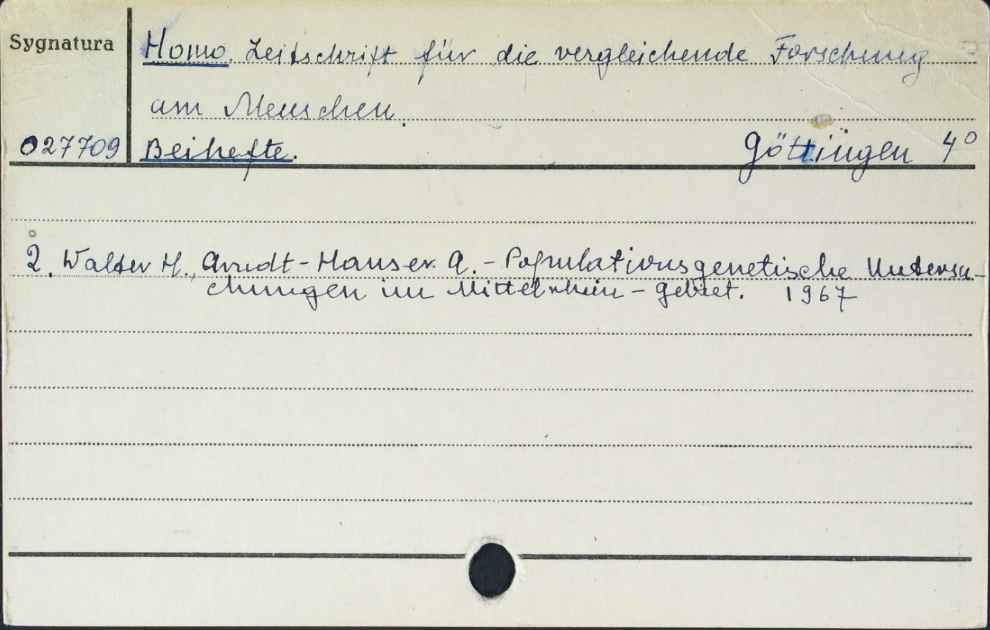 Sygnatura
Homo. Zeitschrift für die vergleichende Forschung
am Menschen.
027709 Beihefte. Göttingen 4°
2. Walter H., Arndt-Hauser A. - Populationsgenetische Untersu-
chungen im Mittelrhein-gebiet. 1967